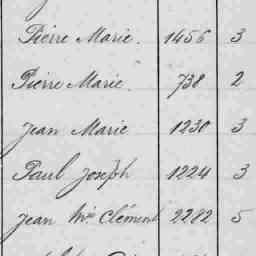 Pierre Marie. 1456 3
Pierre Marie. 738 2
Jean Marie 1230 3
Paul Joseph 1224 3
Jean Mie Clément 2282 5